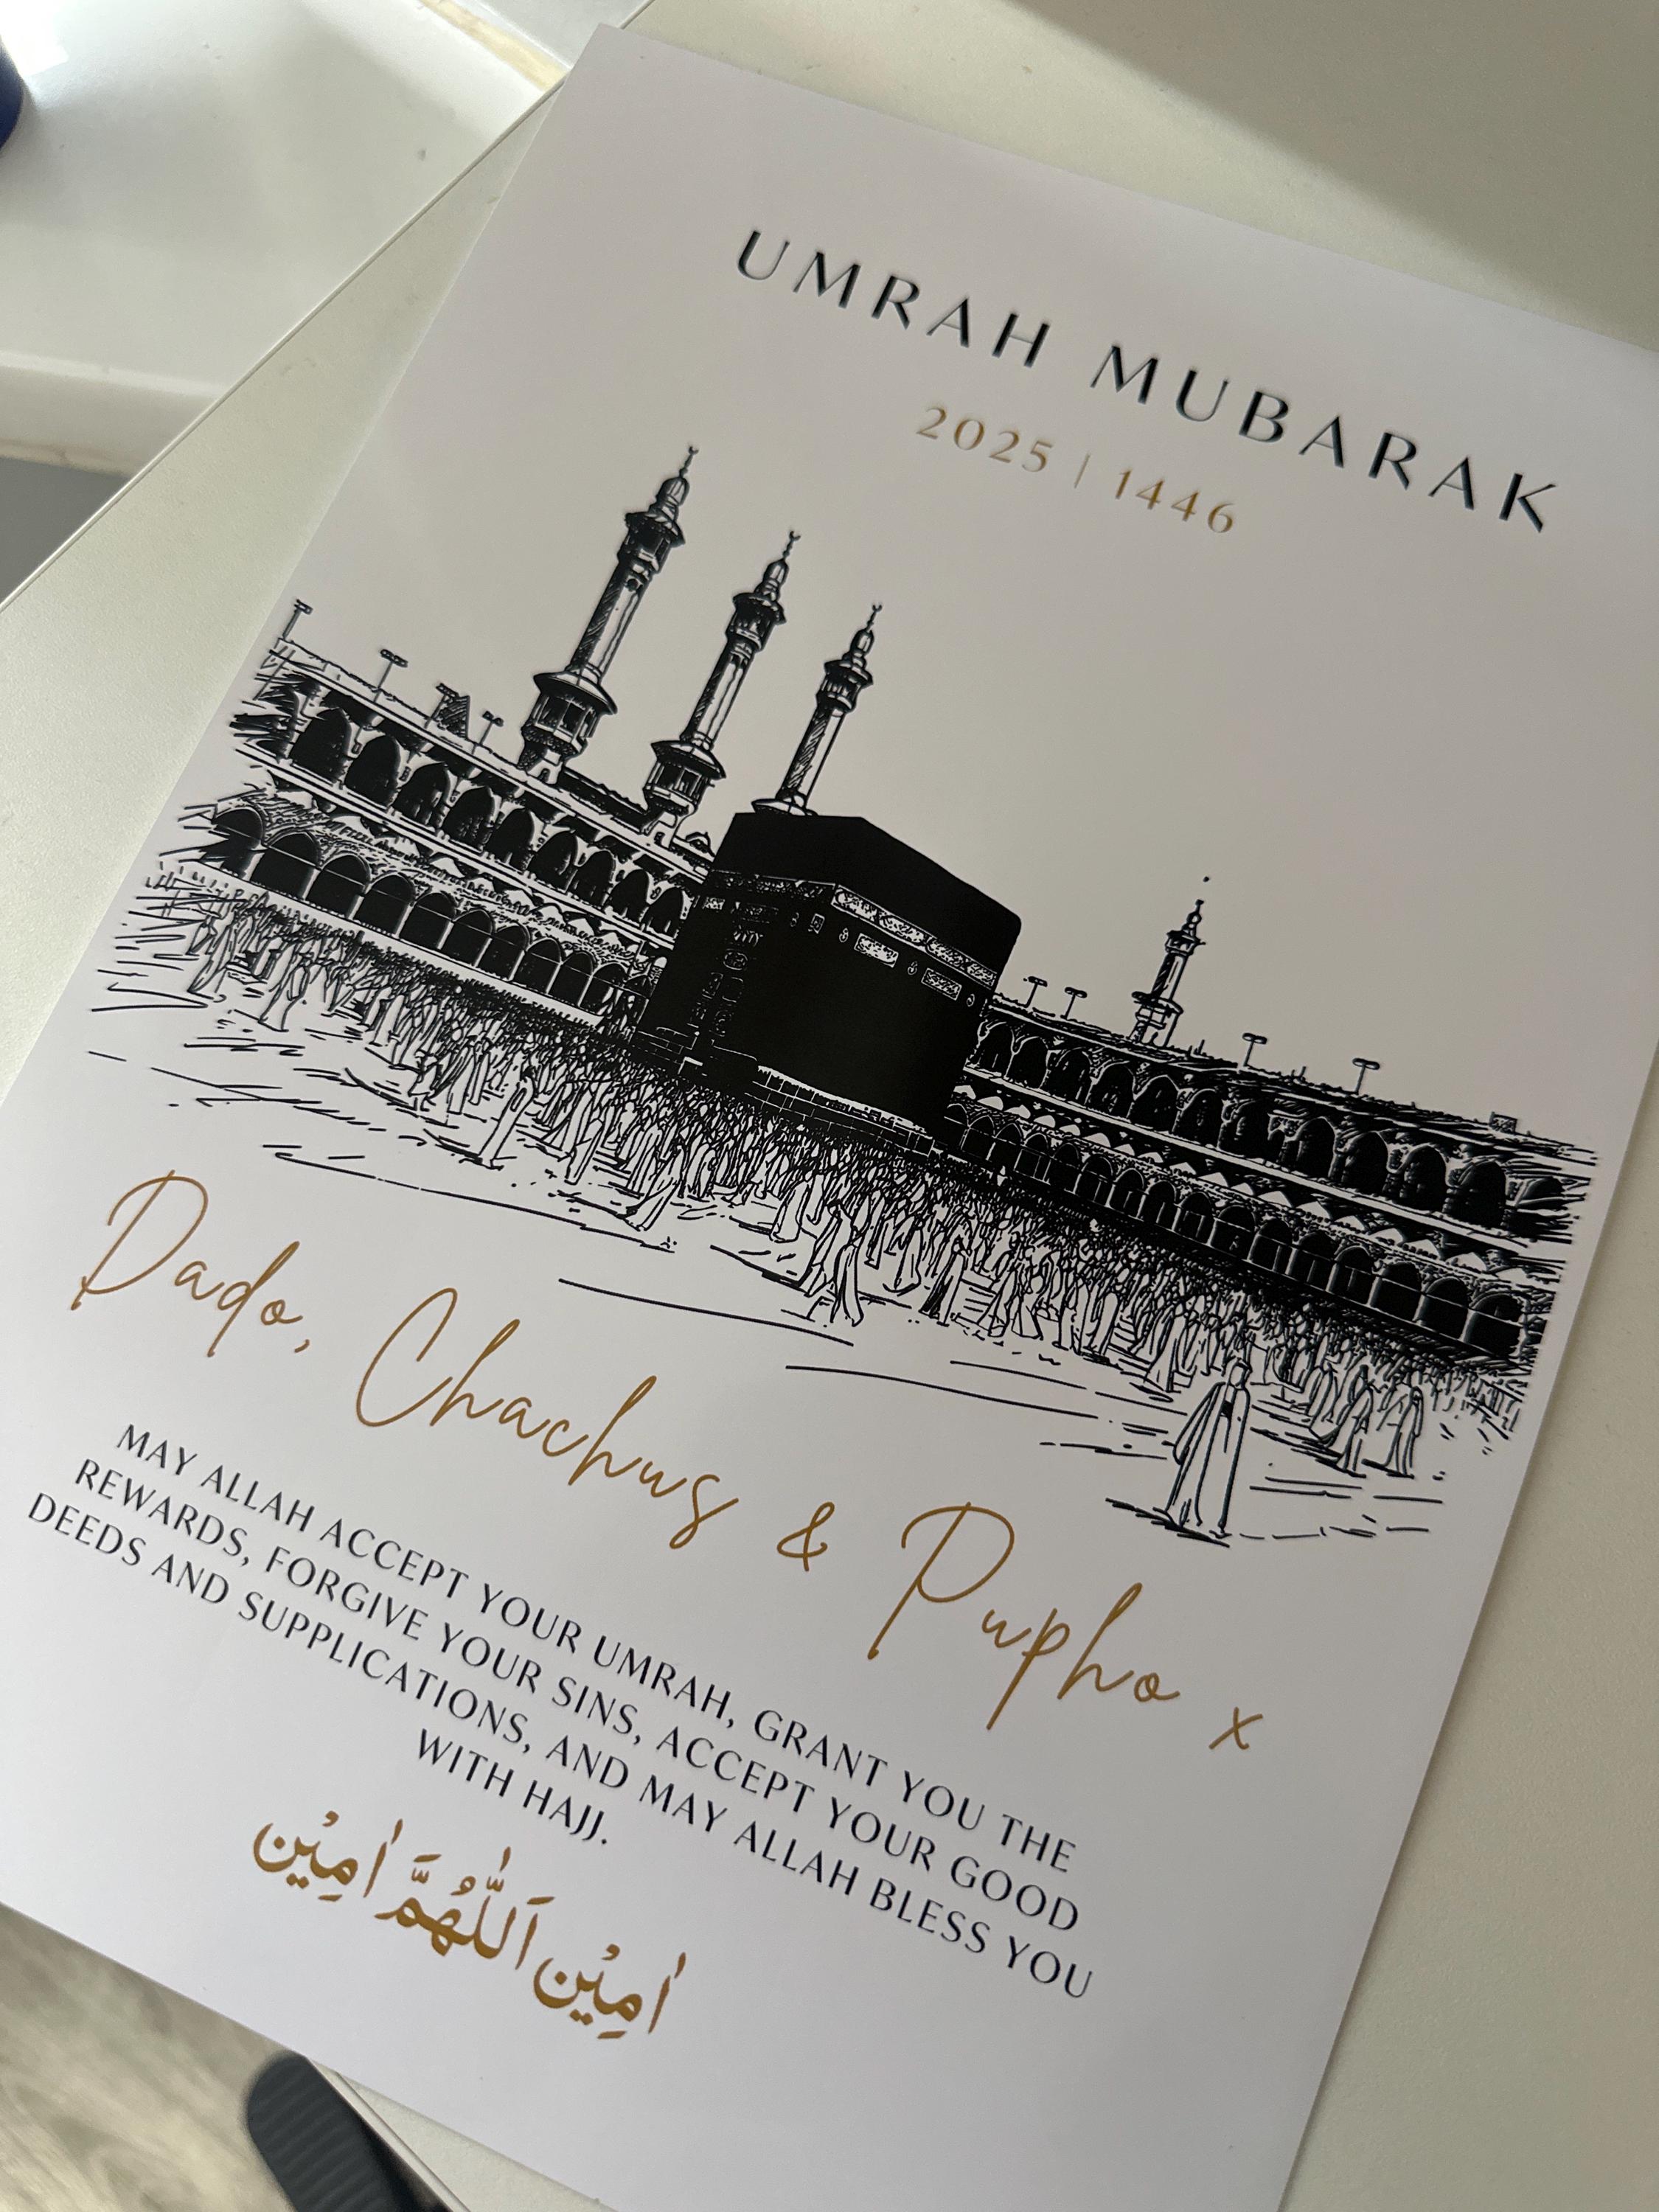 UMRAH MUBARAK
2025 | 1446
Dado, Chachus & Pupho x
MAY ALLAH ACCEPT YOUR UMRAH, GRANT YOU THE
REWARDS, FORGIVE YOUR SINS, ACCEPT YOUR GOOD
DEEDS AND SUPPLICATIONS, AND MAY ALLAH BLESS YOU
WITH HAJJ.
اٰمِيْن اَللّٰهُمَّ اٰمِيْن